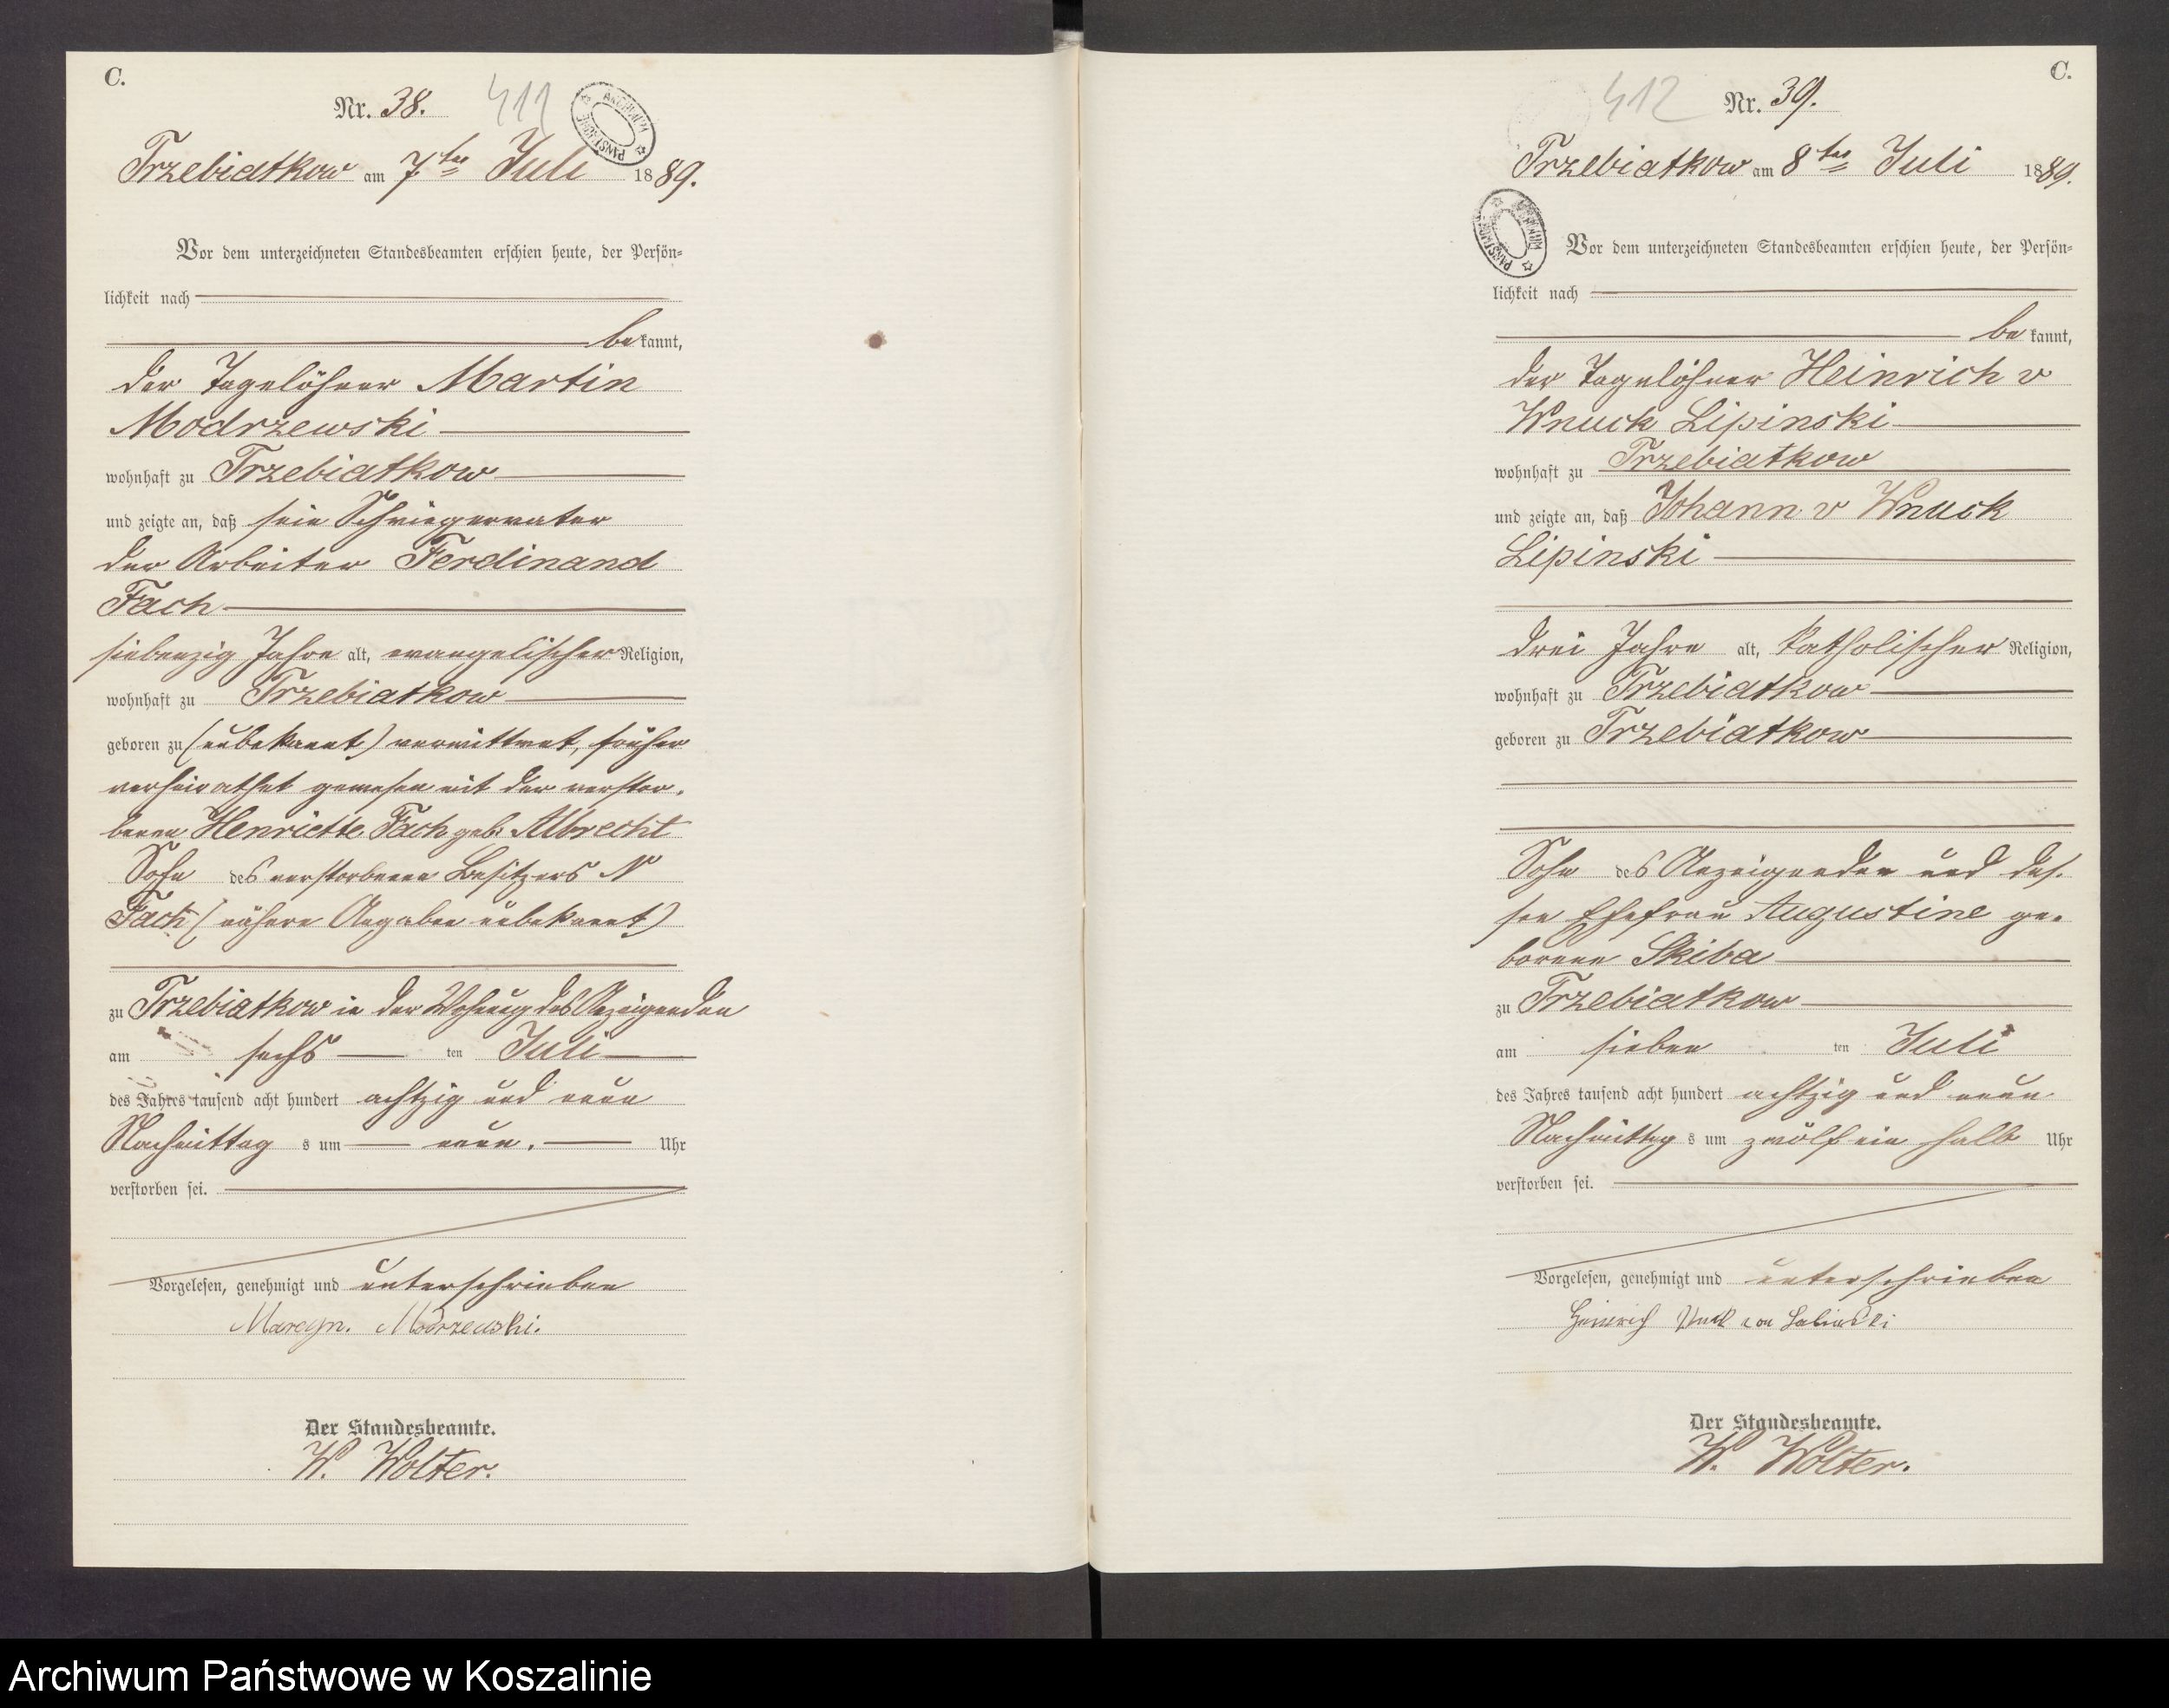 C.
Nr. 38. 411
ARCHIWUM PAŃSTWOWE
Trzebiatkow am 7ten Juli 1889.
Vor dem unterzeichneten Standesbeamten erschien heute, der Persön-
lichkeit nach
bekannt,
der Tagelöhner Martin
Modrzewski
wohnhaft zu Trzebiatkow
und zeigte an, daß sein Schwiegervater
der Arbeiter Ferdinand
Fach
siebenzig Jahre alt, evangelischer Religion,
wohnhaft zu Trzebiatkow
geboren zu (unbekannt) verwittwet, früher
verheirathet gewesen mit der verstor-
benen Henriette Fach geb: Albrecht
Sohn des verstorbenen Besitzers N
Fach (nähere Angaben unbekannt)
zu Trzebiatkow in der Wohnung des Anzeigenden
am sechs ten Juli
des Jahres tausend acht hundert achtzig und neun
Nachmittag s um neun. Uhr
verstorben sei.
Vorgelesen, genehmigt und unterschrieben
Marcyn. Modrzewski.
Der Standesbeamte.
W. Wolter.
C.
412 Nr. 39.
Trzebiatkow am 8ten Juli 1889.
ARCHIWUM PAŃSTWOWE
Vor dem unterzeichneten Standesbeamten erschien heute, der Persön-
lichkeit nach
bekannt,
der Tagelöhner Heinrich v
Wnuck Lipinski
wohnhaft zu Trzebiatkow
und zeigte an, daß Johann v Wnuck
Lipinski
drei Jahre alt, katholischer Religion,
wohnhaft zu Trzebiatkow
geboren zu Trzebiatkow
Sohn des Anzeigenden und des-
sen Ehefrau Augustine ge-
borene Skiba
zu Trzebiatkow
am sieben ten Juli
des Jahres tausend acht hundert achtzig und neun
Nachmittag s um zwölf ein halb Uhr
verstorben sei.
Vorgelesen, genehmigt und unterschrieben
Heinrich von
Der Standesbeamte.
W. Wolter.
Archiwum Państwowe w Koszalinie